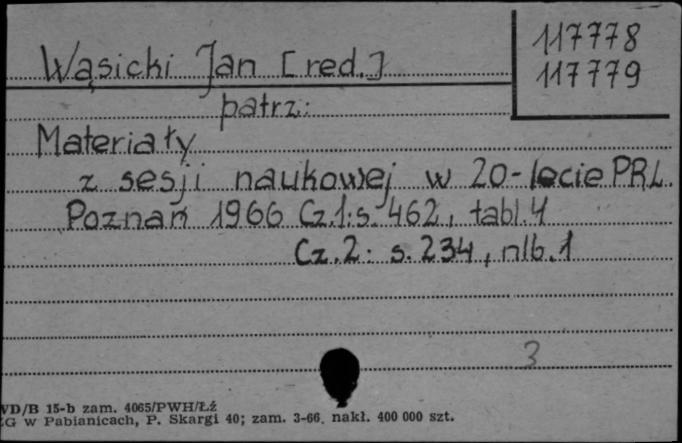 117778
117779
Wąsicki Jan [red.]
patrz:
Materiały
z sesji naukowej w 20-lecie PRL.
Poznań 1966 Cz.1: s. 462, tabl. 4
Cz. 2: s. 234, nlb. 1
3
WD/B 15-b zam. 4065/PWH/Łź
ZG w Pabianicach, P. Skargi 40; zam. 3-66. nakł. 400 000 szt.